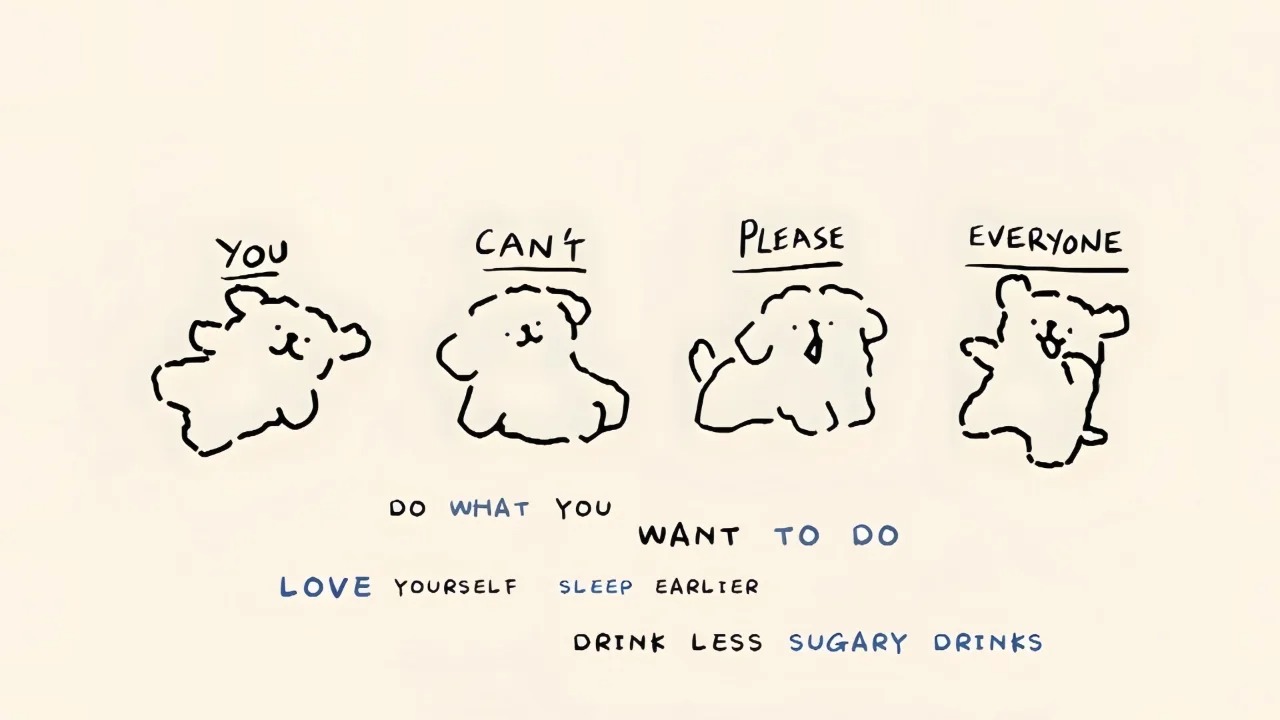 YOU CAN'T PLEASE EVERYONE
DO WHAT YOU
WANT TO DO
LOVE YOURSELF SLEEP EARLIER
DRINK LESS SUGARY DRINKS